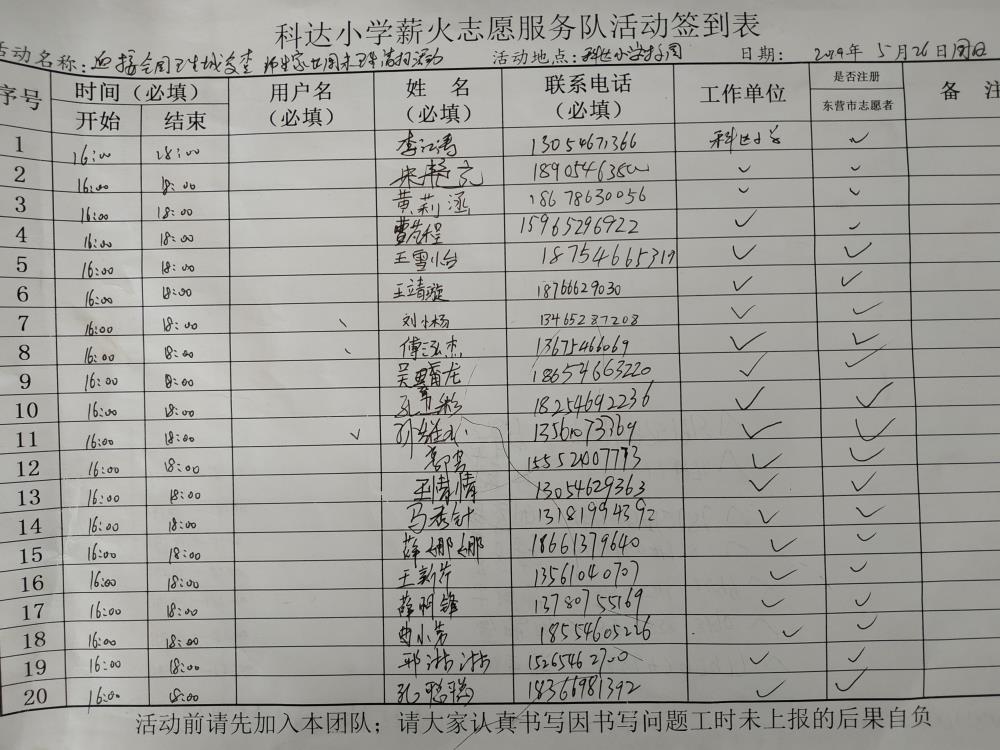 科达小学薪火志愿服务队活动签到表
活动名称：迎接全国卫生城复查 活动地点：科达小学校园 日期：2019年5月26日周日
序号 时间（必填） 用户名（必填） 姓名（必填） 联系电话（必填） 工作单位 是否注册东营市志愿者 备注
开始 结束
1 16:00 18:00 李江涛 13054671366 科达小学 ✓
2 16:00 18:00 ✓ ✓
3 16:00 18:00 黄莉涵 18678630056 ✓ ✓
4 16:00 18:00 15965296922 ✓ ✓
5 16:00 18:00 王雪怡 18754665319 ✓ ✓
6 16:00 18:00 王靖璇 18766629030 ✓ ✓
7 16:00 18:00 刘小杨 13465287208 ✓ ✓
8 16:00 18:00 傅泓杰 13675466069 ✓ ✓
9 16:00 8:00 18654663220 ✓ ✓
10 16:00 18:00 18254692236 ✓ ✓
11 16:00 18:00 ✓ 13561073369 ✓ ✓
12 16:00 18:00 15552407773 ✓ ✓
13 16:00 18:00 王倩倩 13054629363 ✓ ✓
14 16:00 18:00 马秀针 13181994392 ✓ ✓
15 16:00 18:00 薛娜娜 18661379640 ✓ ✓
16 16:00 18:00 王新芹 13561040707 ✓ ✓
17 16:00 18:00 薛明锋 13780755169 ✓ ✓
18 16:00 18:00 曲小芳 18554605226 ✓ ✓
19 16:00 18:00 邢淑淑 15265462700 ✓ ✓
20 16:00 18:00 孔聪瑞 18366981392 ✓ ✓
活动前请先加入本团队；请大家认真书写因书写问题工时未上报的后果自负